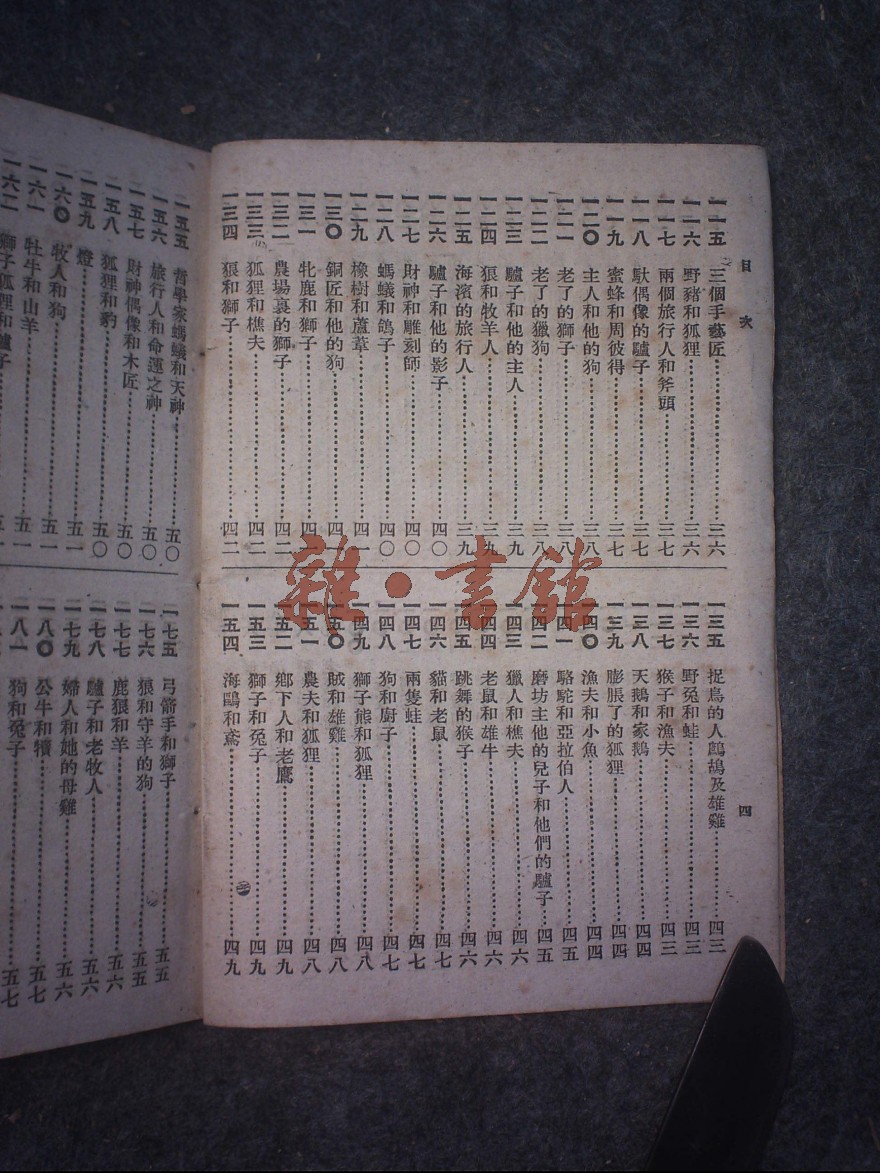 目次
四
一一五 三個手藝匠 三六
一一六 野豬和狐狸 三六
一一七 兩個旅行人和斧頭 三七
一一八 馱偶像的驢子 三七
一一九 蜜蜂和周彼得 三七
一二〇 主人和他的狗 三八
一二一 老了的獅子 三八
一二二 老了的獵狗 三八
一二三 驢子和他的主人 三九
一二四 狼和牧羊人 三九
一二五 海濱的旅行人 三九
一二六 驢子和他的影子 四〇
一二七 財神和雕刻師 四〇
一二八 螞蟻和鴿子 四〇
一二九 橡樹和蘆葦 四一
一三〇 銅匠和他的狗 四一
一三一 牝鹿和獅子 四二
一三二 農場裏的獅子 四二
一三三 狐狸和樵夫 四二
一三四 狼和獅子 四二
一三五 捉鳥的人鷓鴣及雄雞 四三
一三六 野兔和蛙 四三
一三七 猴子和漁夫 四三
一三八 天鵝和家鵝 四四
一三九 膨脹了的狐狸 四四
一四〇 漁夫和小魚 四四
一四一 駱駝和亞拉伯人 四五
一四二 磨坊主他的兒子和他們的驢子 四五
一四三 獵人和樵夫 四六
一四四 老鼠和雄牛 四六
一四五 跳舞的猴子 四六
一四六 貓和老鼠 四七
一四七 兩隻蛙 四七
一四八 狗和廚子 四七
一四九 獅子熊和狐狸 四八
一五〇 賊和雄雞 四八
一五一 農夫和狐狸 四八
一五二 鄉下人和老鷹 四九
一五三 獅子和兔子 四九
一五四 海鷗和鳶 四九
一五五 哲學家螞蟻和天神 五〇
一五六 旅行人和命運之神 五〇
一五七 財神偶像和木匠 五〇
一五八 狐狸和豹 五〇
一五九 燈 五一
一六〇 牧人和狗 五一
一六一 牡牛和山羊 五一
一六二 獅子狐狸和驢子
一七五 弓箭手和獅子 五五
一七六 狼和守羊的狗 五五
一七七 鹿狼和羊 五六
一七八 驢子和老牧人 五六
一七九 婦人和她的母雞 五六
一八〇 公牛和犢 五七
一八一 狗和兔子 五七
雜·書館